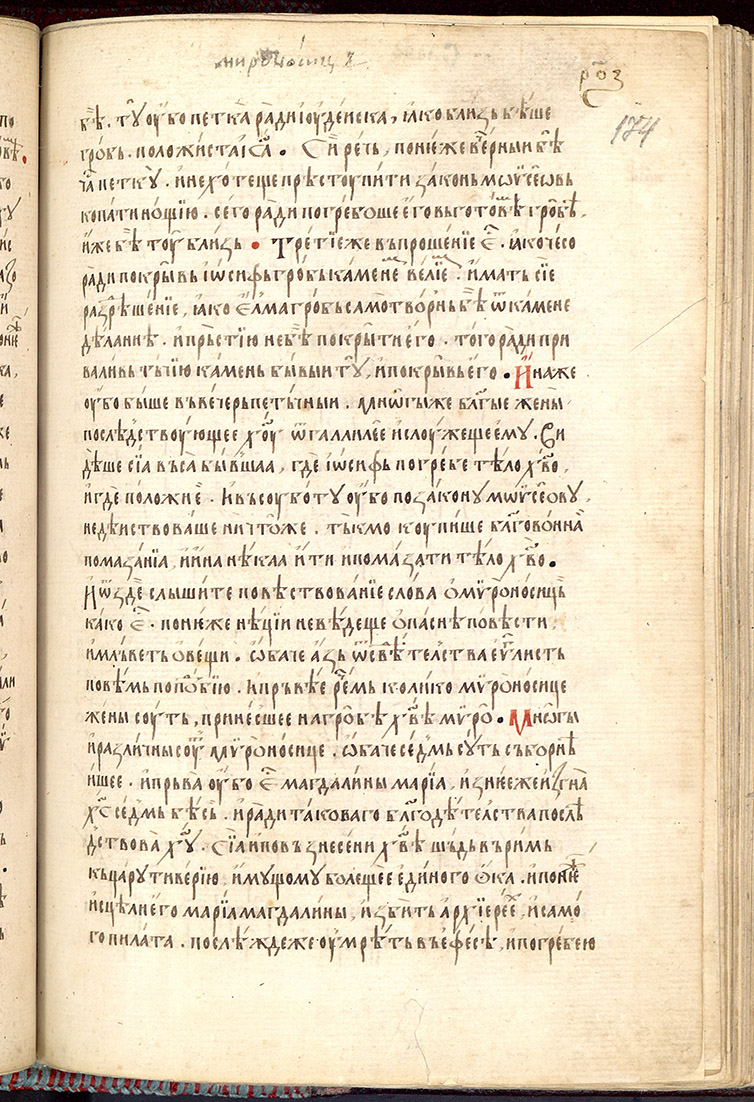 мироносиц
роз
174
бѣ. тꙋ оубо петка ради іоудейска, ꙗко близь бѣше
гробь. положиста іс҃а. Си рѣчь, понеже вечерныи бѣ
ча петкꙋ. и не хотеще прѣстоупити законь мѡѵсеѡвь
копати нощїю. сего ради погребоше его вь готовѣмь гробѣ,
иже бѣ тоу близь. Третїе же вьпрошенїе е҃. ꙗко чесо
ради покрывь іѡсифь гробь каменемь велїемь. имать сїе
разрѣшенїе, ꙗко елма гробь самотворнь бѣ ѿ камене
дѣланнѣ. и прьстїю не бѣ покрыти его. того ради при
валивь тьчїю камень бывыи тꙋ, и покрывь его. Инаже
оубо быше вь вечерь петьчныи. Мнѡгыже бл҃гые жены
послѣдствоующее хоу ѿ галлилее и слоужещее емꙋ. Ви
дѣше сїа вьса бывшаа, где іѡсифь погребе тѣло хв҃о,
и где положи е. И вь соуботꙋ оубо по законꙋ мѡѵсеѡвꙋ,
не дѣиствоваше ничтоже. тькмо коупише бл҃говонна
помазанїа, и ина нѣкаа ити и помазати тѣло хв҃о.
И ѿ зде слышите повѣствованїе слова о мѵроносиць
како е҃. понеже нѣцїи не вѣдеще опаснѣ повѣсти
и мльветь о вещи. ѡбаче азь ѿ свѣтелства еѵ҃листь
повѣмь по подобїю. И прьвѣе рцѣмь колико мѵроносице
жены соуть, принесшее на гробѣ хв҃ѣ мѵро. Мнѡгы
и различны соуть мѵроносице. ѡбаче седмь сꙋть сьборнѣ
ишее. и прьва оубо е҃ магдалины марїа, из нееже изгна
хс҃ седмь бѣсь. и ради таковаго бл҃годѣтелства послѣ
дствова хоу. Сїа и по вьзнесени хв҃ѣ шьдь вь римь
кь царꙋ тиверїю, имꙋщомꙋ болещее единого ока. и по
исцѣли его марїа магдалины, и збить архїерее, и само
го пилата. послѣжде же оумрѣть вь ефесѣ, и погребе ю